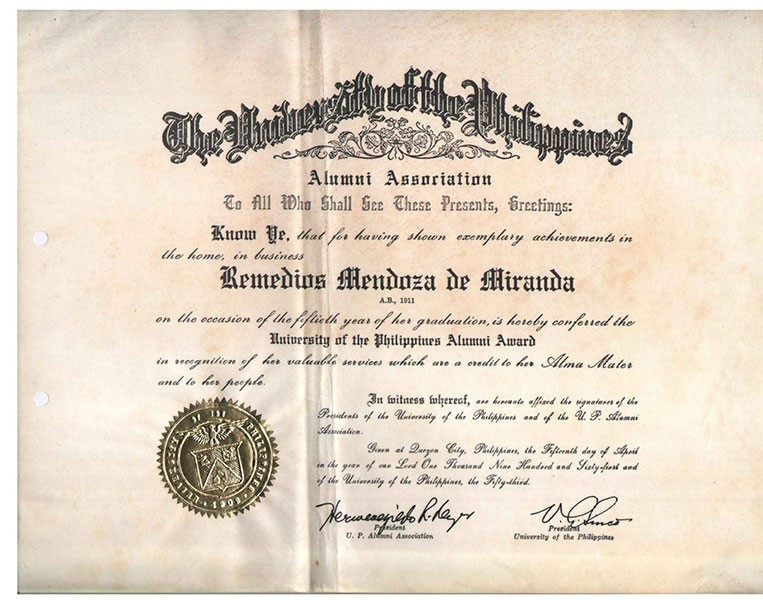 The University of the Philippines
Alumni Association
To All Who Shall See These Presents, Greetings:
Know Ye, that for having shown exemplary achievements in
the home, in business
Remedios Mendoza de Miranda
A.B., 1911
on the occasion of the fiftieth year of her graduation, is hereby conferred the
University of the Philippines Alumni Award
in recognition of her valuable services which are a credit to her Alma Mater
and to her people.
In witness whereof, are hereunto affixed the signatures of the
Presidents of the University of the Philippines and of the U. P. Alumni
Association.
Given at Quezon City, Philippines, the Fifteenth day of April
in the year of our Lord One Thousand Nine Hundred and Sixty-first and
of the University of the Philippines, the Fifty-third.
President
U. P. Alumni Association
President
University of the Philippines
UNIVERSITY OF THE PHILIPPINES
1908